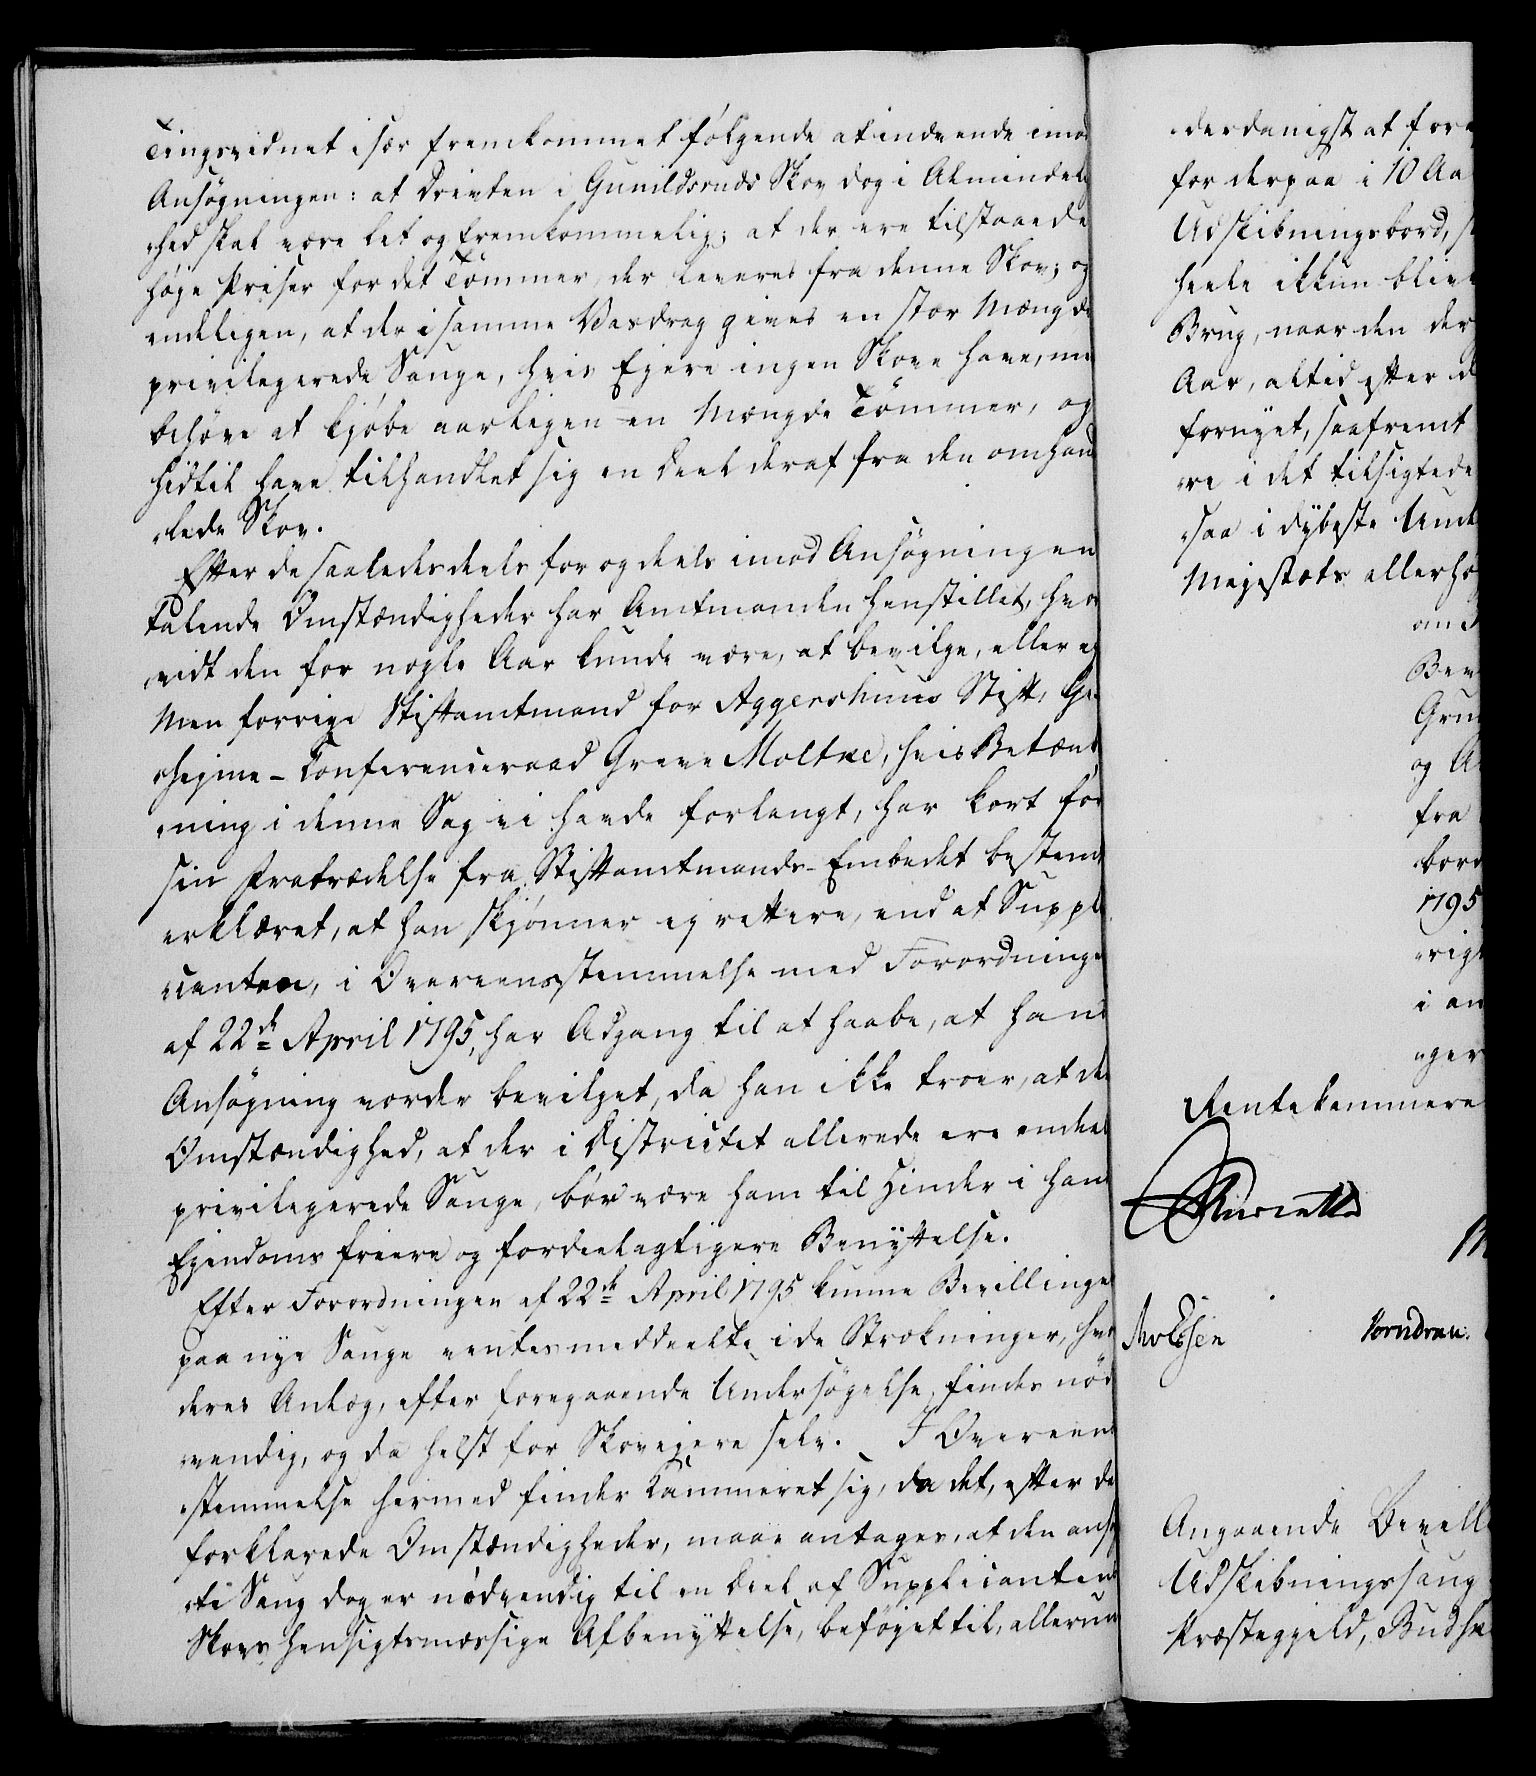 Tingsvidnet især fremkommet følgende at indvende imod
Ansøgningen: at Driften i Gunildsruds Skov dog i Almindelig
„hed skal være let og fremkommelig; at der ere tilstaaede
høje Priser for det Tømmer, der leveres fra denne Skov; og
endeligen, at der i samme Vasdrag gives en stor Mængde
privilegerede Sauge, hvis Ejere ingen Skove have, men
behøve at kjøbe aarligen en Mængde Tømmer, og
hidtil have tilhandlet sig en Deel deraf fra den omhand
„lede Skov.
Efter de saaledes deels for og deels imod Ansøgningen
talende Omstændigheder har Amtmanden henstillet, hvor
„vidt den for nogle Aar kunde være, at bevilge, eller ej
Men forrige Stiftamtmand for Aggershuus Stift, Ge
„hejme-Conferenceraad Greve Moltke, hvis Betænk
„ning i denne Sag vi havde forlangt, har kort før
sin Fratrædelse fra Stiftamtmands-Embedet bestemt
erklæret, at han skjønner ej rettere, end at Suppli
„canten, i Overeensstemmelse med Forordningen
af 22de April 1795, har Adgang til at haabe, at hans
Ansøgning vorder bevilget, da han ikke troer, at den
Omstændighed, at der i Districtet allerede ere endeel
privilegerede Sauge, bør være ham til Hinder i hans
Ejendoms friere og fordeelagtigere Benyttelse.
Efter Forordningen af 22de April 1795 kunne Bevillinger
paa nye Sauge ventes meddeelte i de Strækninger, hvor
deres Anlæg, efter foregaaende Undersøgelse, findes nød
„vendig, og da helst for Skovejere selv. I Overeens
„stemmelse hermed finder Kammeret sig, da det, efter de
forklarede Omstændigheder, maae antages, at den ansøg
„te Saug dog er nødvendig til en Deel af Supplicantens
Skovs hensigtsmæssige Afbenyttelse, beføjet til, allerun
„derdanigst at fore
for derpaa i 10 Aa
Udskibningsbord, s
heele ikkun blive
Brug, naar den der
Aar, altid efter d
fornyet, saafremt
„re i det tilsigtede
„saa i dybeste Unde
Majestæts allerhø
an
Bev
Gru
og A
fra
bord
1795
„rigt
i an
„ger
Rentekammere
M
Vorndran.
Angaaende Bevill
Udskibningssaug
Præstegjeld, Budsk